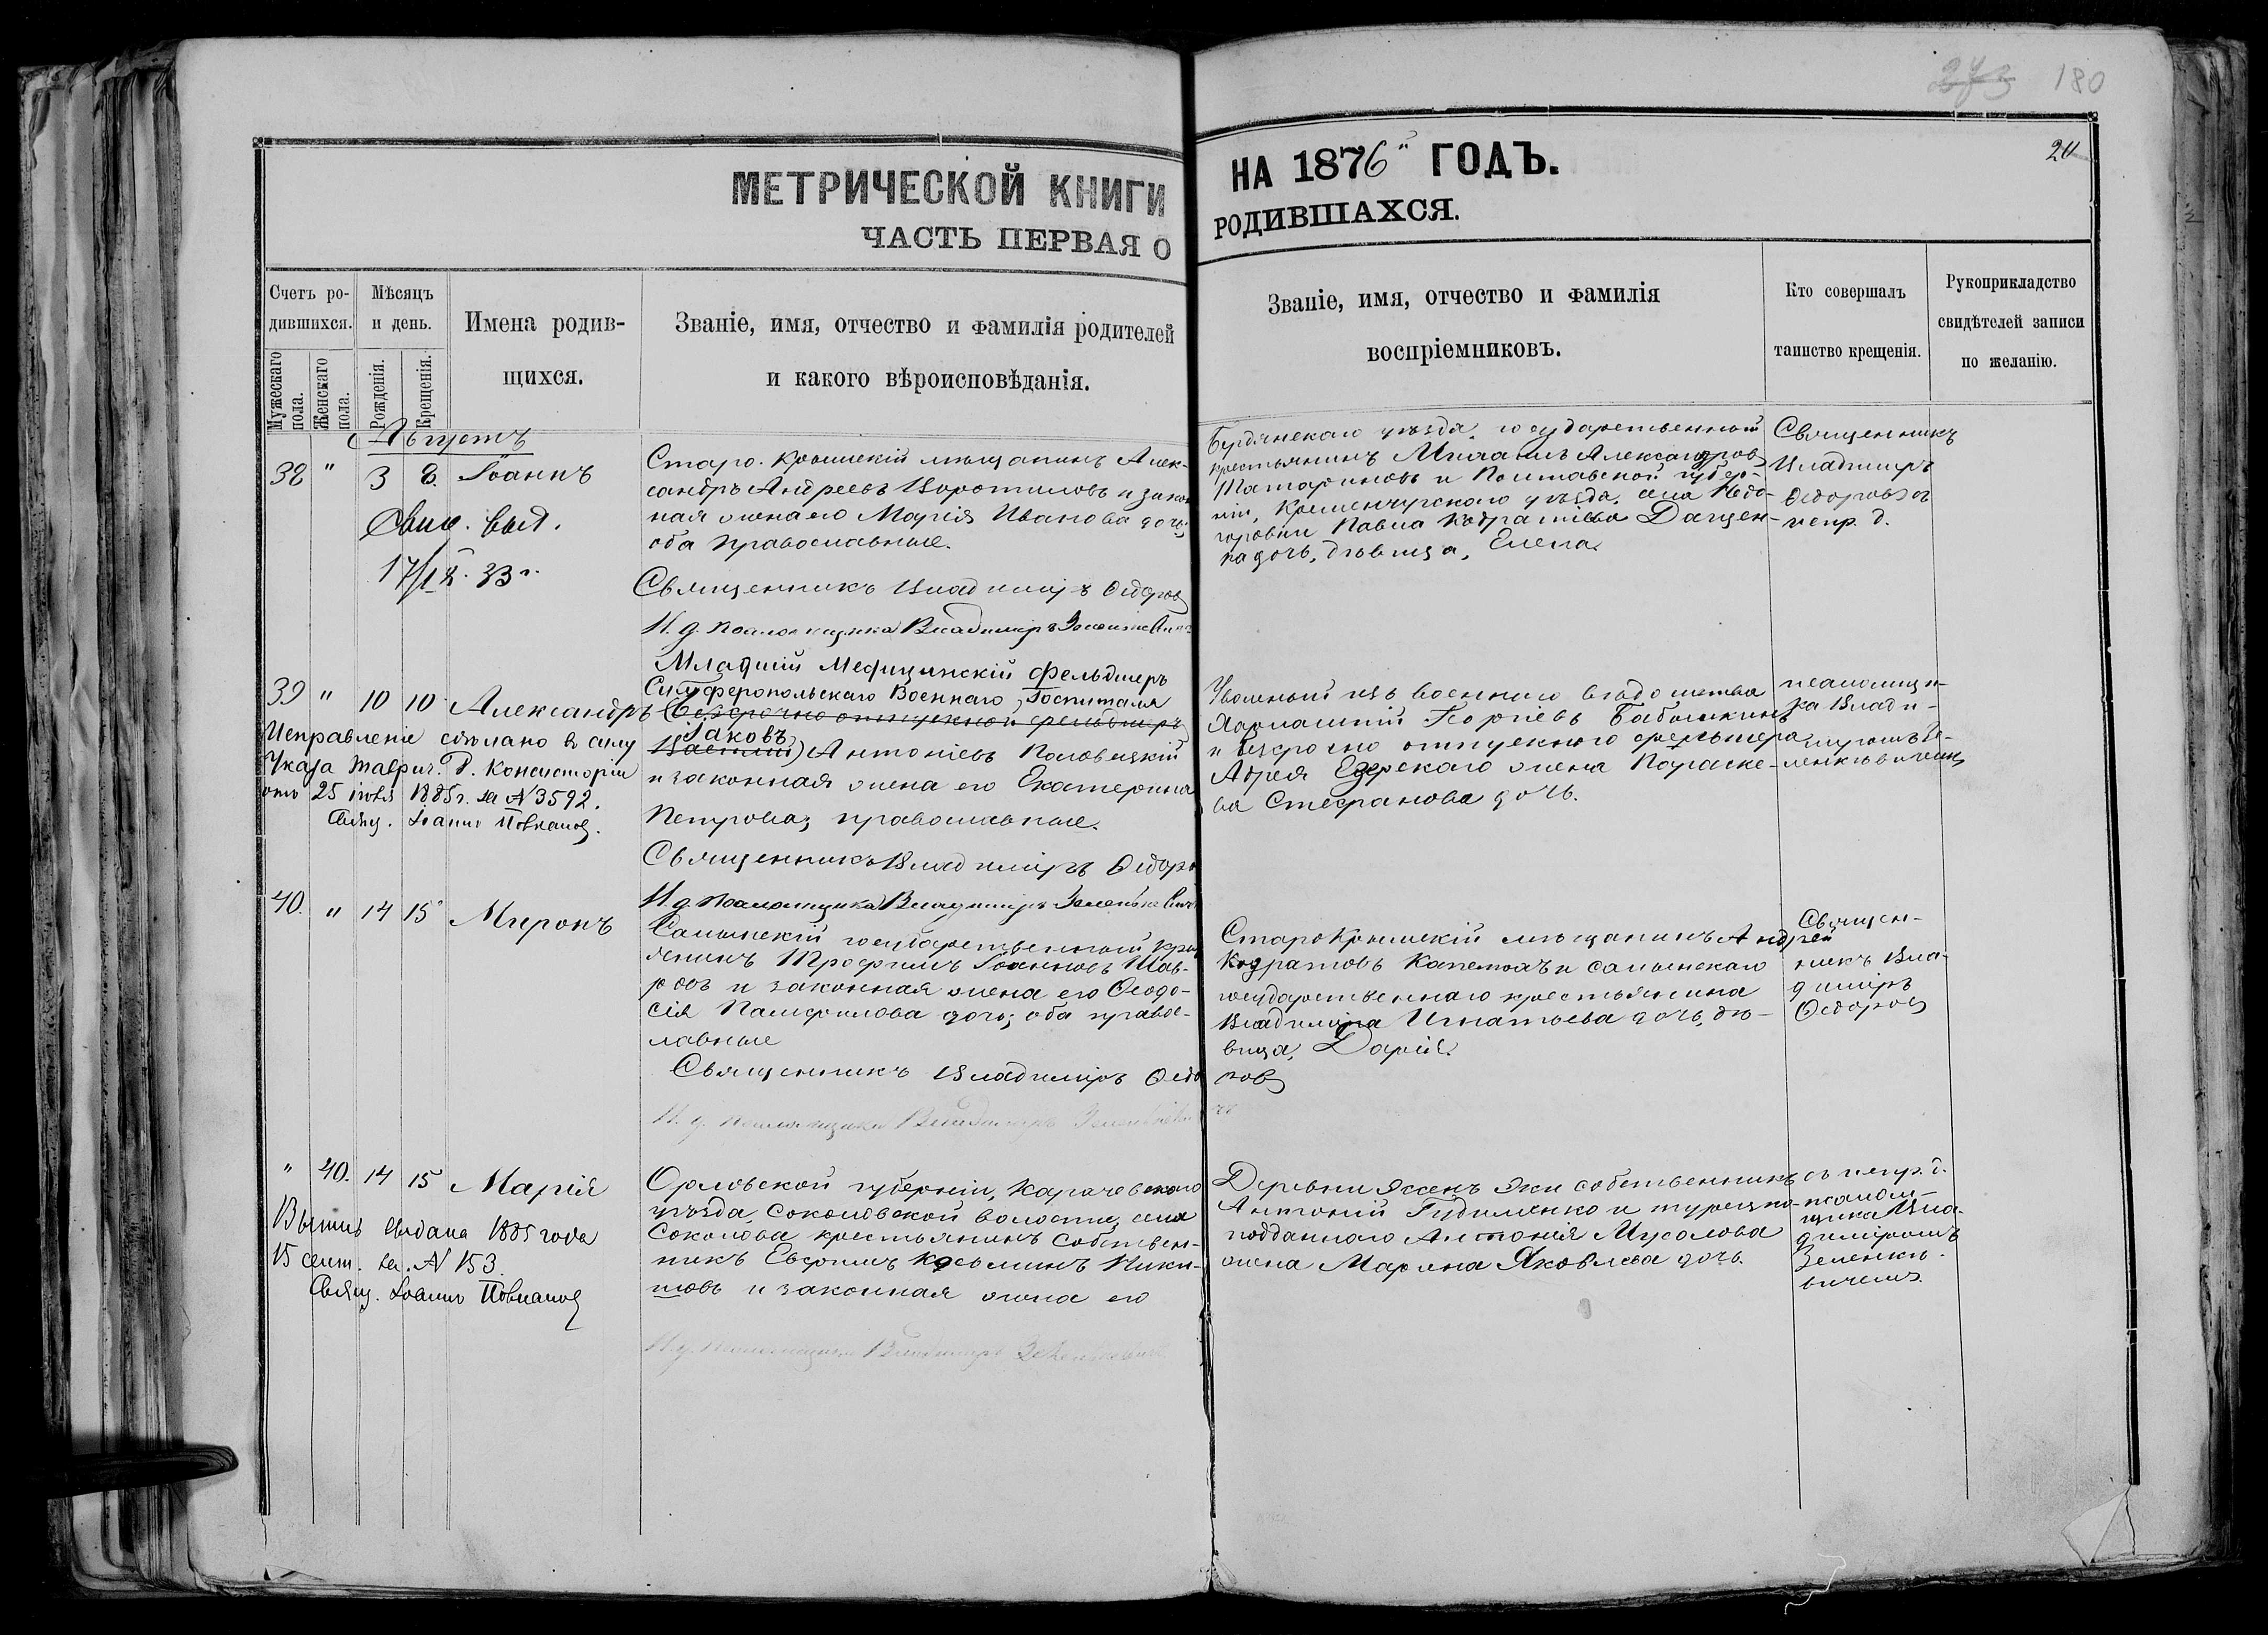 273 180
МЕТРИЧЕСКОЙ КНИГИ
НА 1876й ГОДЪ.
20
ЧАСТЬ ПЕРВАЯ О
РОДИВШАХСЯ.
Счетъ ро-
дившихся.
Мужескаго
пола.
Женскаго
пола.
Мѣсяцъ
и день.
Рожденія.
Крещенія.
Имена родив-
щихся.
Званіе, имя, отчество и фамилія родителей
и какого вѣроисповѣданія.
Званіе, имя, отчество и фамилія
воспріемниковъ.
Кто совершалъ
таинство крещенія.
Рукоприкладство
свидѣтелей записи
по желанію.
Августъ
38 " 3 8. Іоаннъ
выд.
17/IX. 33 г.
Старо-Крымскій мѣщанинъ Алек-
сандръ Андреевъ Воротиловъ и закон
ная жена его Марія Иванова дочь;
оба православные.
Священникъ Владиміръ Ѳедоровъ
И. д. псаломщика Владиміръ Зеленкевичъ
Бердянскаго уѣзда, государственный
крестьянинъ Михаилъ Александровъ
Татариновъ и Полтавской губер-
ніи, Кременчугскаго уѣзда, села Недо-
горовки Павла Кодратіева Дацен-
ка дочь, дѣвица, Елена.
Священникъ
Владиміръ
Ѳедоровъ съ
испр. д.
39 " 10 10 Александръ
Исправленіе сдѣлано въ силу
Указа Таврич. Д. Консисторіи
отъ 25 іюля 1885 г. за №3592.
Свящ. Іоаннъ
Младшій Медицинскій Фельдшеръ
Симферопольскаго Военнаго Госпиталя
(безсрочно отпускной фельдшеръ
Іаковъ
Василій) Антоніевъ Половицкій
и законная жена его Екатерина
Петрова, православные.
Священникъ Владиміръ Ѳедоро
И. д. псаломщика Владиміръ Зеленкевичъ
Уволеный изъ военнаго вѣдомства
Харлампій Георгіевъ Бабушкинъ
и безсрочно отпускного фельдшера
Андрея Езерскаго жена Параске-
ва Стефанова дочь.
псаломщи-
ка Влади-
миромъ Зе-
ленкевичемъ
40. " 14 15 Миронъ
Салынскій государственный крест
янинъ Трофимъ Іоанновъ Шав-
ровъ и законная жена его Ѳеодо-
сія Памфилова дочь; оба правос-
лавные
Священникъ Владиміръ Ѳедо
ровъ
И. д. псаломщика Владиміръ Зеленкевичъ
Старокрымскій мѣщанинъ Андрей
Кодратовъ и салынскаго
государственнаго крестьянина
Владиміра Игнатьева дочь, дѣ-
вица, Дарія.
Священ-
никъ Вла-
диміръ
Ѳедоровъ
" 40. 14 15 Марія
Выпись выдана 1885 года
15 сент. за № 153.
Свящ. Іоаннъ
Орловской губерніи, Карачевскаго
уѣзда, Соколовской волости, села
Соколова крестьянинъ собствен-
никъ Евфимъ Косьминъ Ники-
товъ и законная жена его
И. д. псаломщика Владиміръ Зеленкевичъ
Деревни собственникъ
Антоній Гудименко и турецко-
подданнаго Антонія Мусолова
жена Марина Яковлева дочь.
съ испр. д.
псалом-
щика Вла-
диміромъ
Зеленке-
вичемъ